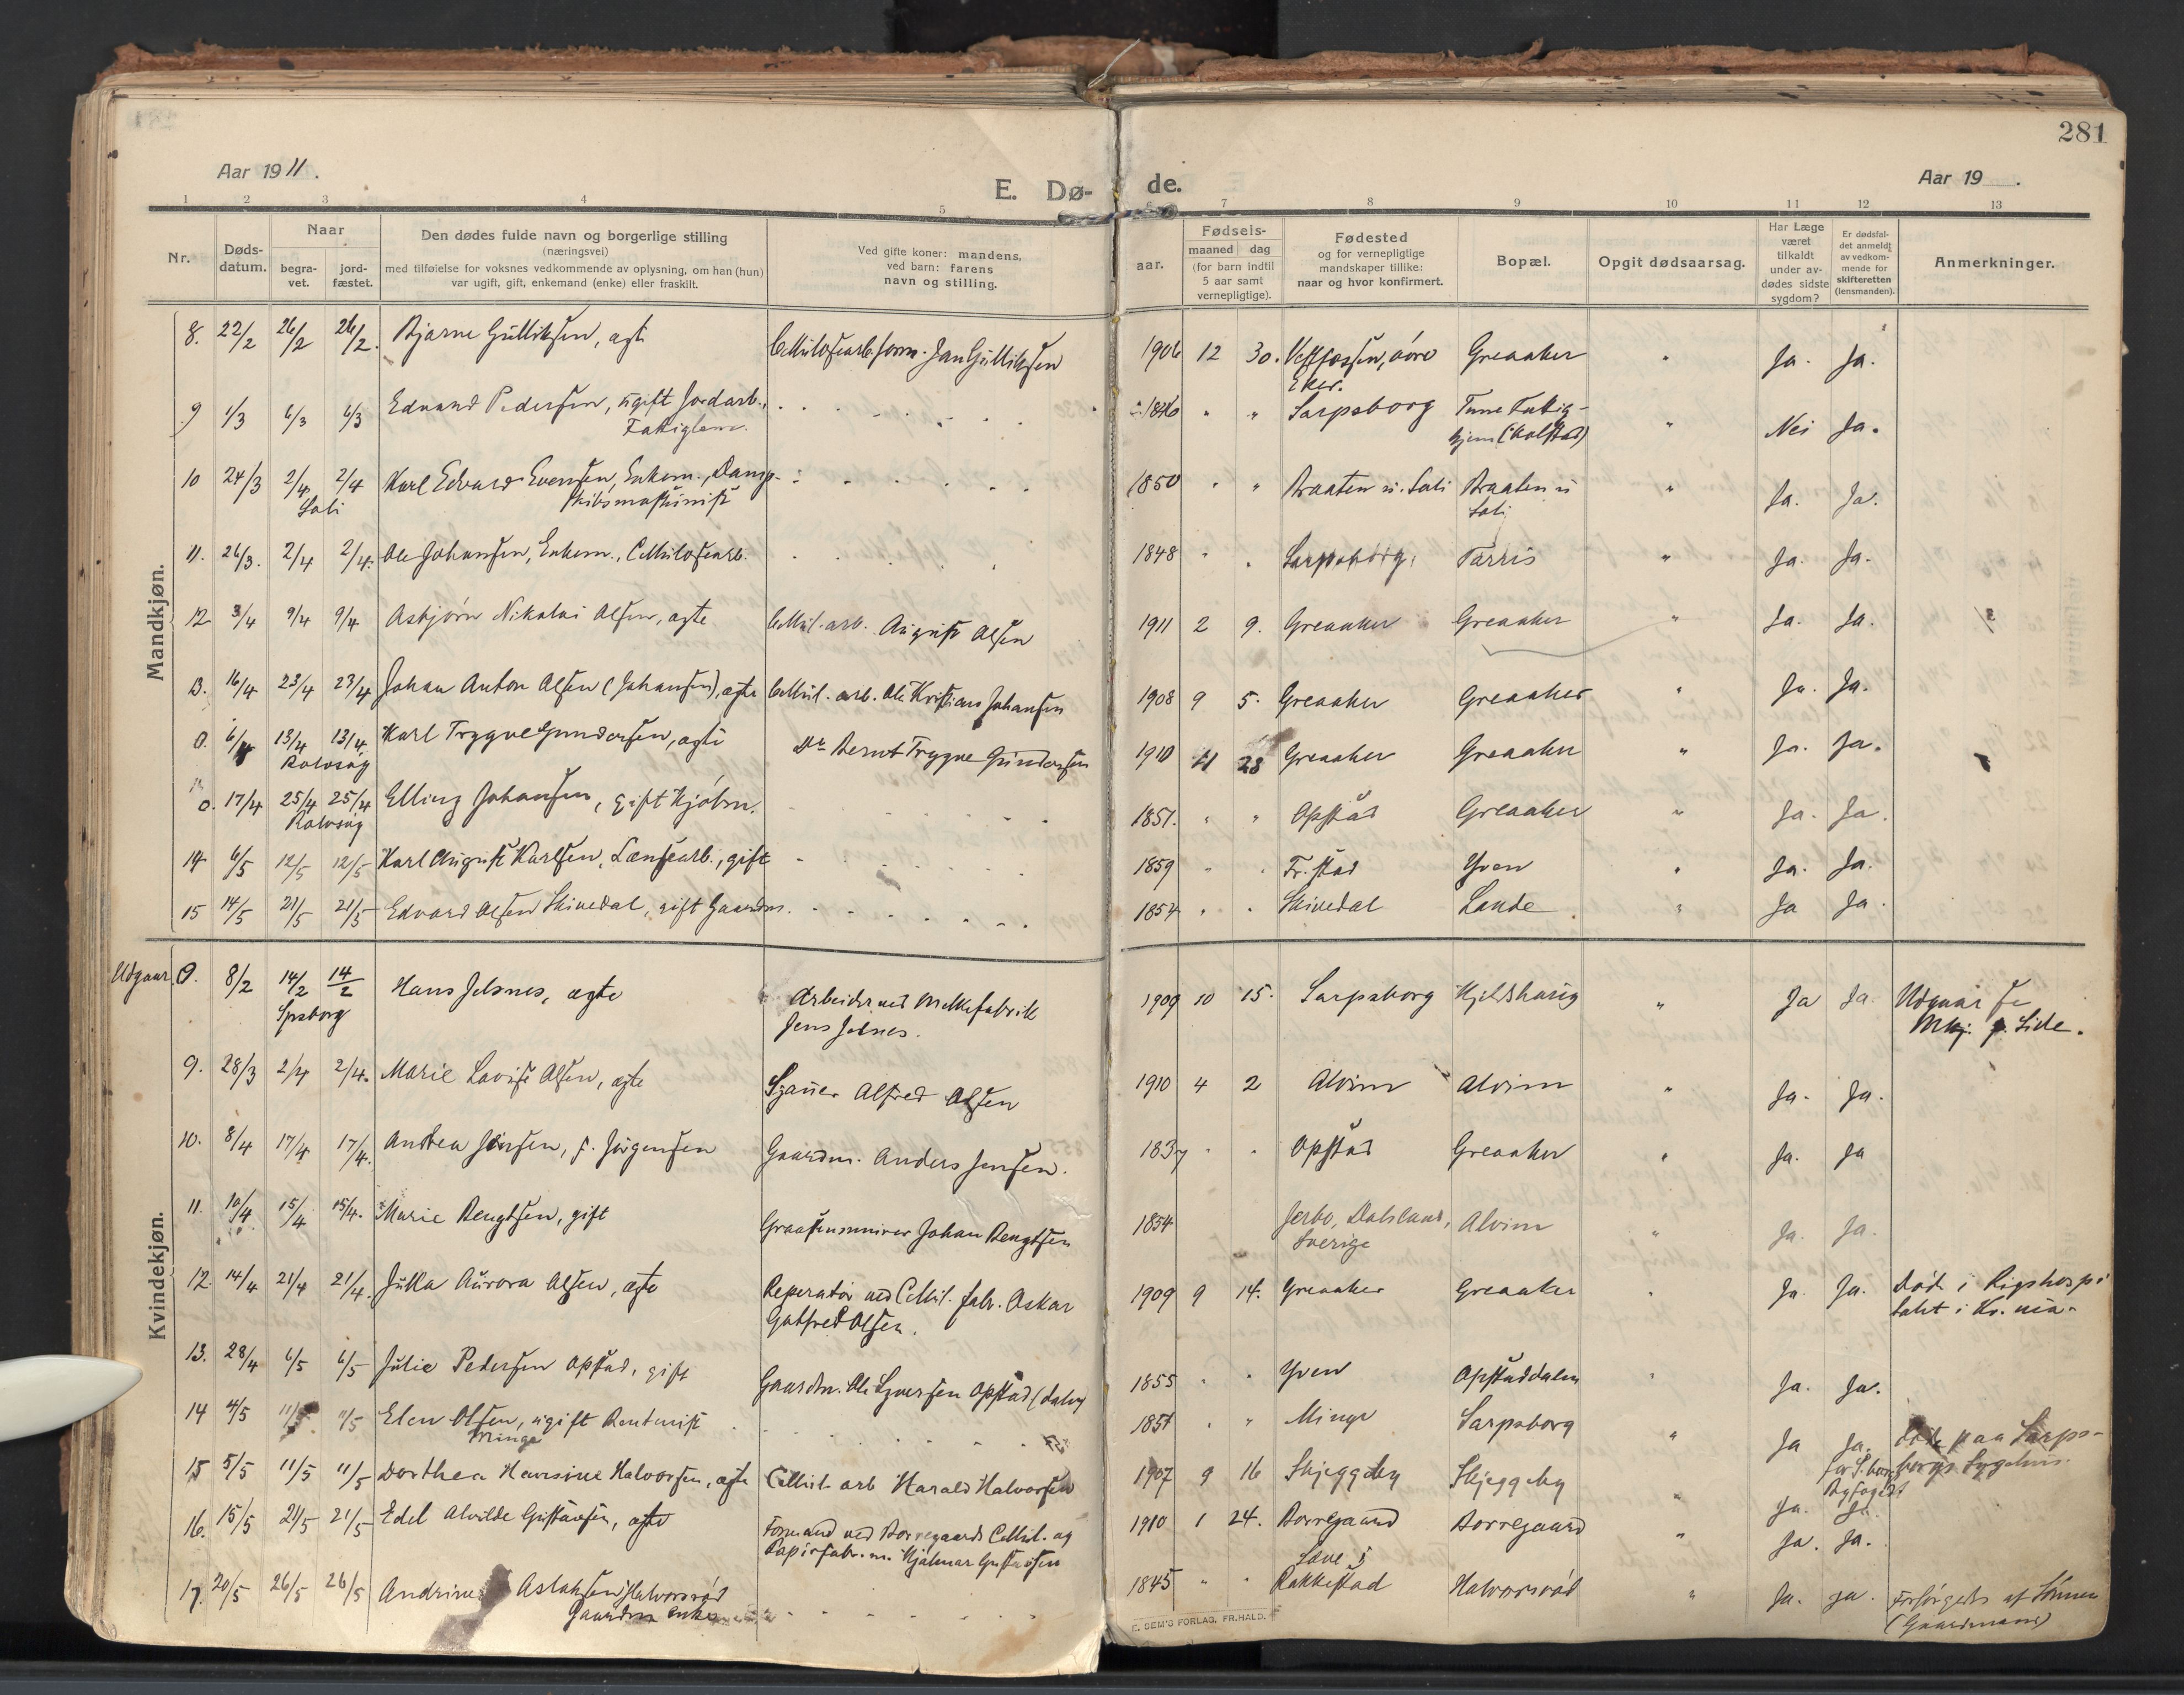 281
Aar 1911.
E. Dø- de.
Aar 19 .
1 2 3 4 5 6 7 8 9 10 11 12 13
Nr.
Døds-
datum.
Naar
begra-
vet.
jord-
fæstet.
Den dødes fulde navn og borgerlige stilling
(næringsvei)
med tilføielse for voksnes vedkommende av oplysning, om han (hun)
var ugift, gift, enkemand (enke) eller fraskilt.
Ved gifte koner: mandens,
ved barn: farens
navn og stilling.
aar.
Fødsels-
maaned dag
(for barn indtil
5 aar samt
vernepligtige).
Fødested
og for vernepligtige
mandskaper tillike:
naar og hvor konfirmert.
Bopæl.
Opgit dødsaarsag.
Har Læge
været
tilkaldt
under av-
dødes sidste
sygdom?
Er dødsfal-
det anmeldt
av vedkom-
mende for
skifteretten
(lensmanden).
Anmerkninger.
Mandkjøn.
8. 22/2 26/2 26/2. Bjarne Gulliksen, ægte Cellulosearb.form. Jan Gulliksen 1906 12 30. Vestfossen, øvre Greaaker " Ja. Ja.
Eker.
9 1/3 6/3 6/3 Edvard Pedersen, ugift Jordarb., 1840 " " Sarpsborg Tune Fattig- " Nei Ja.
Fattiglem. hjem (Kalstad)
10 24/3 2/4 2/4 Karl Edvard Evensen, Enkem., Damp- 1850 " " Braaten u. Soli Braaten u " Ja. Ja.
Soli skibsmaskinist Soli
11. 26/3. 2/4 2/4. Ole Johansen, Enkem., Cellulosearb. 1848 " " Sarpsborg. Tarris " Ja. Ja.
12 3/4 9/4 9/4 Asbjørn Nikolai Olsen, ægte Cellul. arb. August Olsen 1911 2 9. Greaaker Greaaker " Ja. Ja.
13. 16/4 23/4 23/4 Johan Anton Olsen (Johansen), ægte Cellul. arb. Ole Kristian Johansen 1908 9 5. Greaaker Greaaker " Ja. Ja.
0. 6/4 13/4 13/4. Karl Trygve Gundersen, ægte Dr Bernt Trygve Gundersen 1910 11 28 Greaaker Greaaker " Ja. Ja.
Rolvsøy
0. 17/4 25/4 25/4 Elling Johansen, gift Kjøbm. 1857. " " Opstad Greaaker " Ja. Ja.
Rolvsøy
14 6/5 12/5 12/5 Karl August Karlsen, Lænsearb., gift 1859 " " Fr.stad Yven " Ja. Ja.
15 14/5 21/5 21/5 Edvard Olsen Skinedal, gift Gaardm. 1854 " " Skinedal Lande " Ja Ja
Kvindekjøn.
Udgaar 0. 8/2 14/2 14/2 Hans Jelsnes, ægte Arbeider ved Melkefabrik 1909 10 15. Sarpsborg " Ja Ja. Udgaar se
Spsborg Jens Jelsnes. Mkj. f. Side.
9. 28/3 2/4 2/4. Marie Lovise Olsen, ægte Alfred Olsen 1910 4 2 Alvim Alvim " Ja. Ja.
10. 8/4 17/4 17/4. Anthea Jensen, f. Jørgensen Gaardm. Anders Jensen. 1837 " " Opstad Greaaker " Ja. Ja
11. 10/4 15/4 15/4. Marie Bengtsen, gift Graastensminer Johan Bengtsen 1854 Jerbo, Dalsland, Alvim " Ja. Ja.
Sverige
12. 14/4 21/4 21/4. Julla Aurora Olsen, ægte Reperatør ved Cellul. fabr. Oskar 1909 9 14. Greaaker Greaaker " Ja. Ja. Død i Rigshospi
Gotfred Olsen. talet i Kr.nia.
13. 28/4 6/5 6/5 Julie Pedersen Opstad, gift Gaardm. Ole Syversen Opstad (dalen) 1855 " " Yven Opstaddalen " Ja. Ja.
14 4/5 11/5 11/5 Elen Olsen, ugift Rentenist 1851 " " Minge Sarpsborg " Ja Ja. Død paa Sarps-
Minge for S.borg borgs Sygehus.
Byfoged
15 5/5 11/5 11/5 Dorthea Haursine Halvorsen, ægte Cellul. arb Harald Halvorsen 1907 9 16 Skjeggeby Skjeggeby " Ja. Ja.
16. 15/5 21/5 21/5 Edel Alvilde Gustavsen, ægte Formand ved Borregaards Cellul. og 1910 1 24. Borregaard Borregaard " Ja. Ja.
Papirfabr. m. Hjalmar Gustavsen
17. 20/5 26/5 26/5 Andrine Aslaksen Halvorsrød 1845 " " Rakkestad Halvorsrød " Ja. Ja. Forsørgedes af Sønnen
Gaardm enke (Gaardmand)
E. SEM'S FORLAG, FR.HALD.